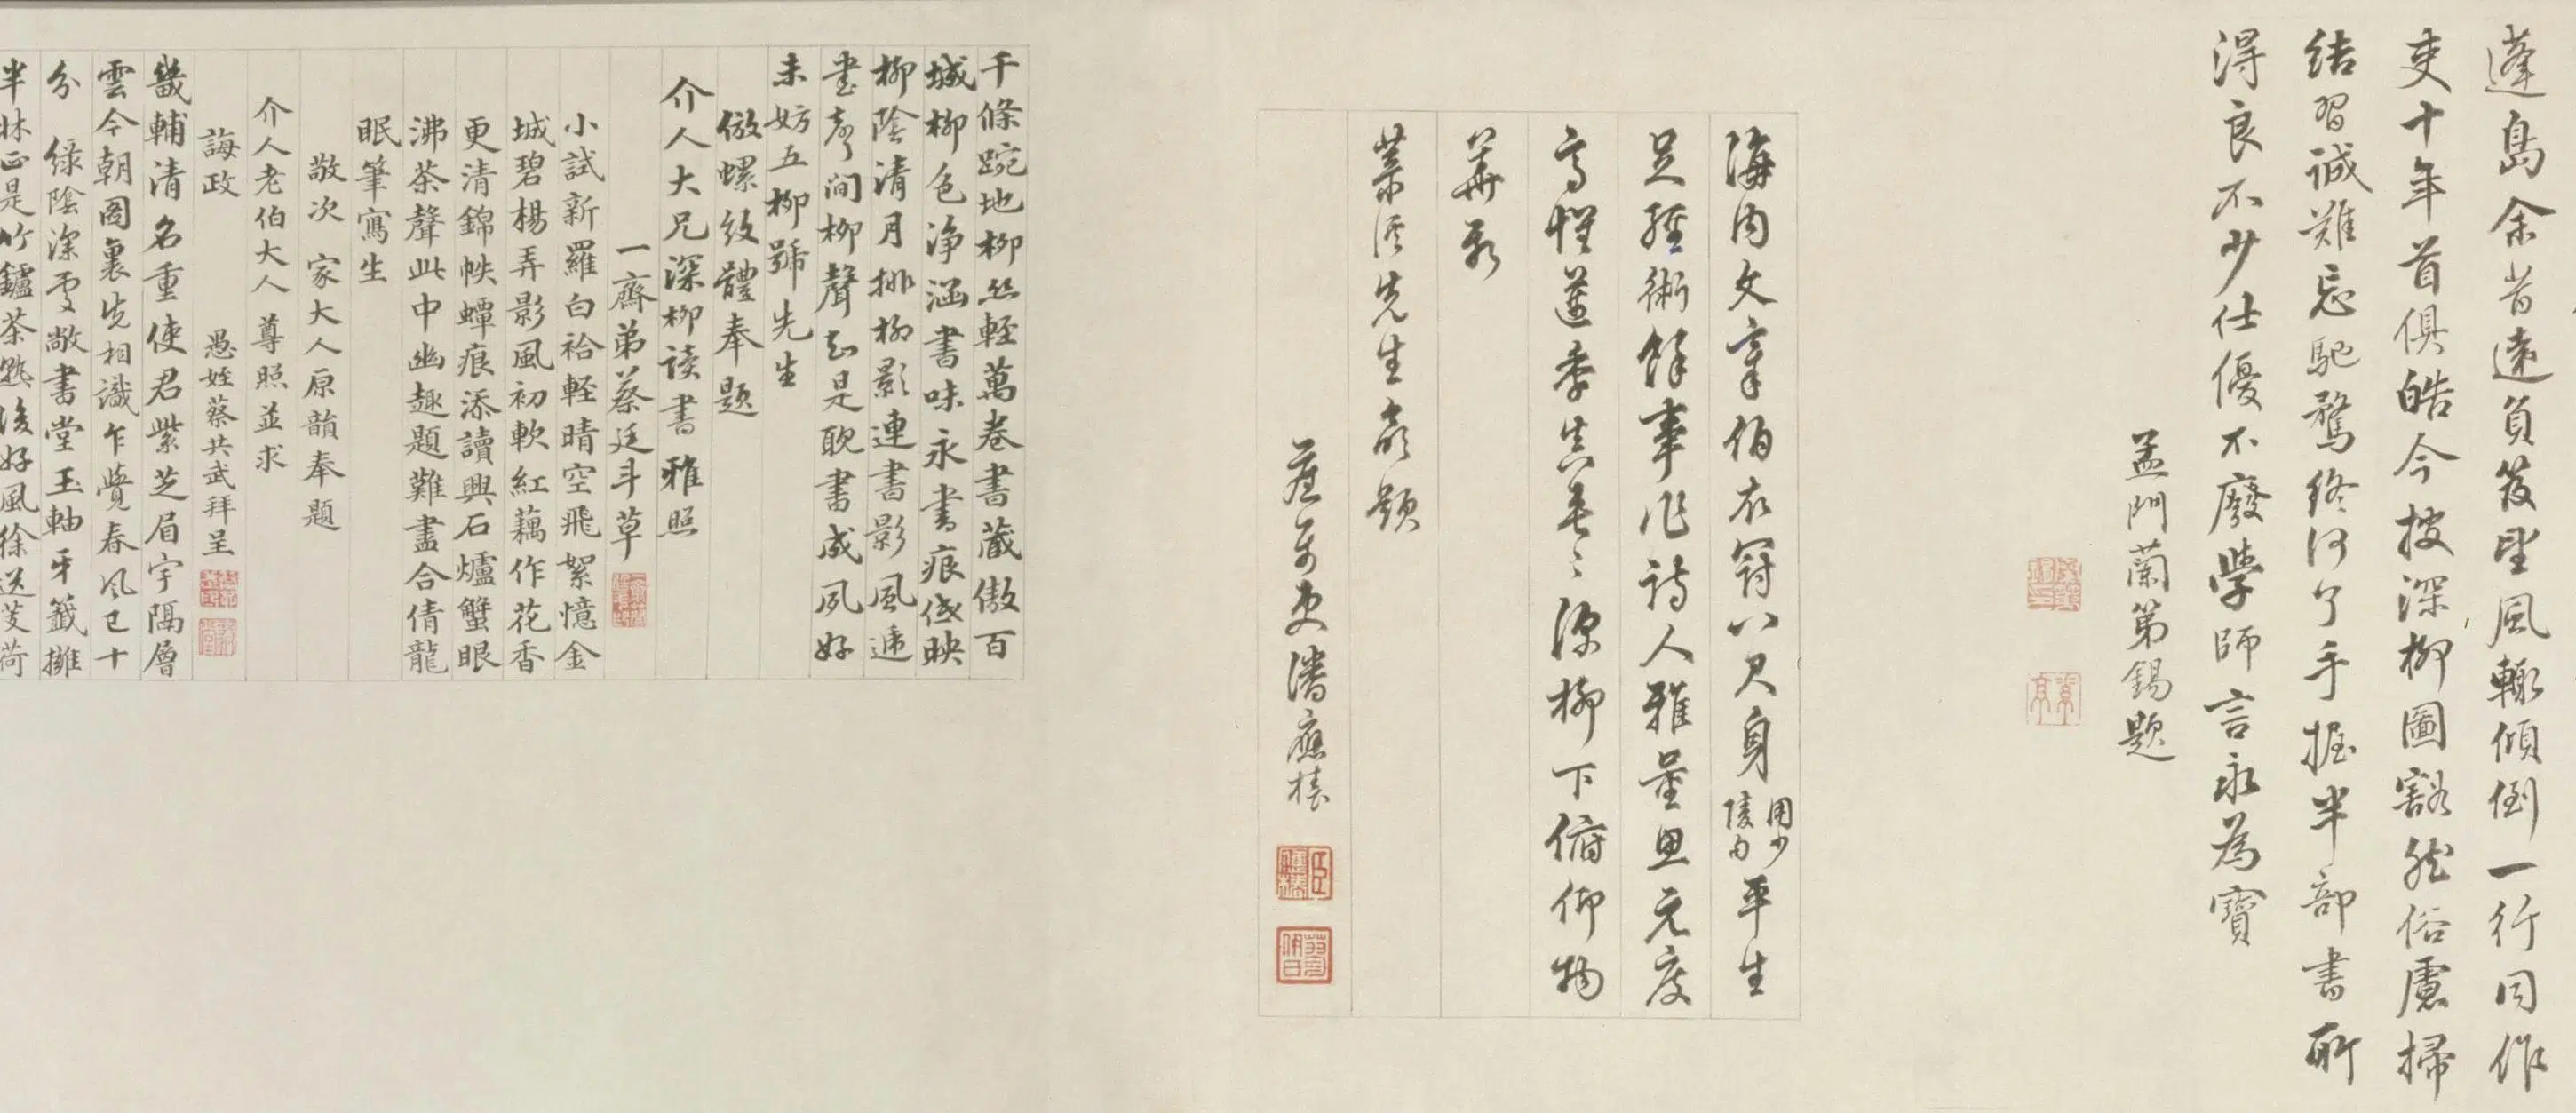 蓬島余昔遠負笈望風輙傾倒一行同作
吏十年首俱皓今披深柳圖豁然俗慮掃
結習誠難忘馳騖終何了手握半部書所
得良不少仕優不廢學師言永為寶
孟門蘭第錫題
海內文章伯衣冠八尺身用少陵句平生
足經術餘事作詩人雅量思元度
高懷蓮季真春深柳下俯仰物
華新
先生敬題
潘應椿
千條踠地柳絲輕萬卷書藏傲百
城柳色淨涵書味永書痕低映
柳陰清月排柳影連書影風遞
書聲間柳聲知是耽書成夙好
未妨五柳號先生
倣螺紋體奉題
介人大兄深柳读書雅照
一齋弟蔡廷斗草
小試新羅白袷輕晴空飛絮憶金
城碧楊弄影風初軟紅藕作花香
更清錦帙蟫痕添讀興石爐蟹眼
沸茶聲此中幽趣題難盡合倩龍
眠筆寫生
敬次 家大人原韻奉題
介人老伯大人 尊照並求
誨政 愚姪蔡共武拜呈
畿輔清名重使君紫芝眉宇隔層
雲今朝圖裏先相識乍覺春風已十
分 綠陰深處敞書堂玉軸牙籤擁
半牀正是竹鑪茶熟後好風徐送芰荷